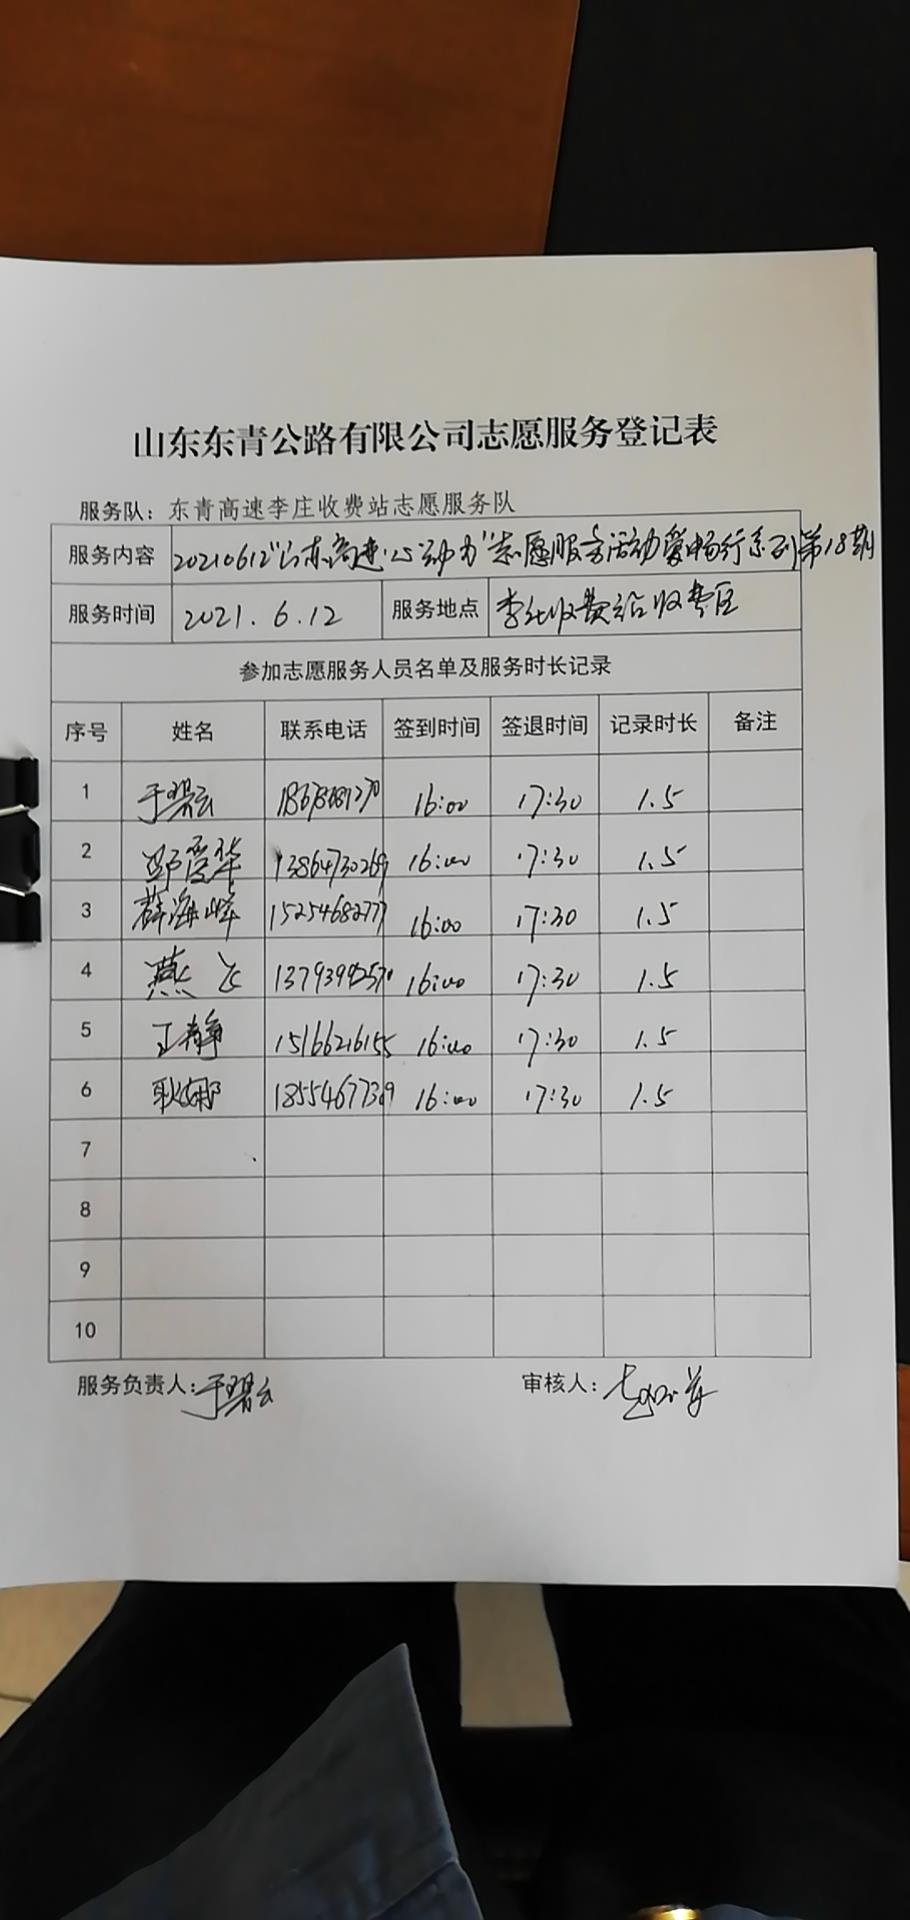 山东东青公路有限公司志愿服务登记表
服务队：东青高速李庄收费站志愿服务队
服务内容 20210612"山东高速·心动力"志愿服务活动爱畅行系列第18期
服务时间 2021.6.12 服务地点 李庄收费站收费区
参加志愿服务人员名单及服务时长记录
序号 姓名 联系电话 签到时间 签退时间 记录时长 备注
1 于碧云 16:00 17:30 1.5
2 邹爱华 13864730269 16:00 17:30 1.5
3 薛海峰 15254682777 16:00 17:30 1.5
4 燕飞 16:00 17:30 1.5
5 王静 15166216155 16:00 17:30 1.5
6 耿娜 18554677389 16:00 17:30 1.5
7
8
9
10
服务负责人：于碧云 审核人：